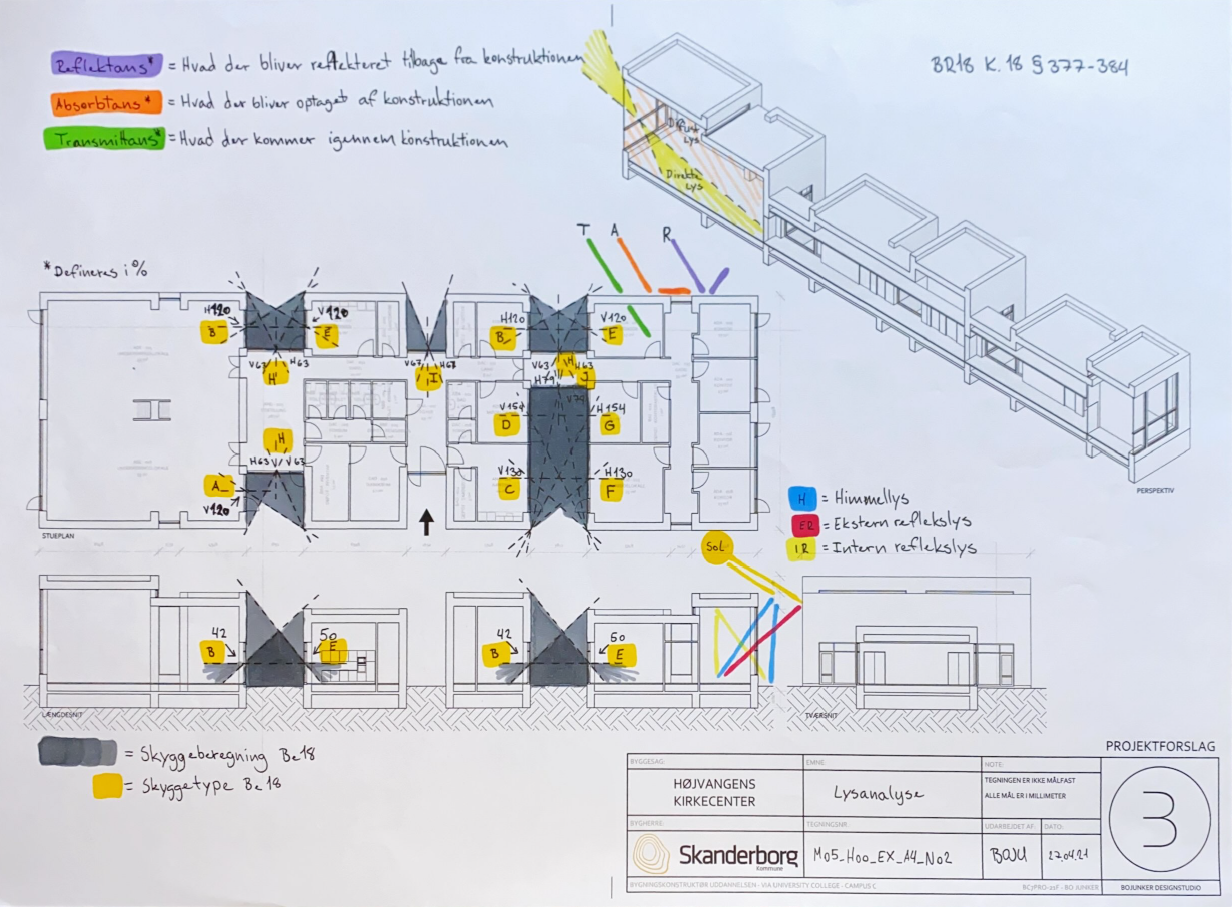 Reflektans* = Hvad der bliver reflekteret tilbage fra konstruktionen
Absorbtans* = Hvad der bliver optaget af konstruktionen
Transmittans* = Hvad der kommer igennem konstruktionen
BR18 K. 18 § 377-384
Difust Lys
Direkte Lys
PERSPEKTIV
* Defineres i %
T A R
H120 V120 H120 V120
B E B E
V63 H63 V67 H67 V63 H63
H I H J
H79 V79
V154 H154
D G
H
H63 V63
V130 H130
A C F
V120
STUEPLAN
H = Himmellys
ER = Ekstern reflekslys
IR = Intern reflekslys
Sol
42 50 42 50
B E B E
LÆNGDESNIT
TVÆRSNIT
= Skyggeberegning Be18
= Skyggetype Be18
PROJEKTFORSLAG
3
BYGGESAG:
HØJVANGENS
KIRKECENTER
EMNE:
Lysanalyse
NOTE:
TEGNINGEN ER IKKE MÅLFAST
ALLE MÅL ER I MILLIMETER
BYGHERRE:
Skanderborg
Kommune
TEGNINGSNR
M05_H00_EX_A4_N02
UDARBEJDET AF:
BOJU
DATO:
27.04.21
BYGNINGSKONSTRUKTØR UDDANNELSEN - VIA UNIVERSITY COLLEGE - CAMPUS C
BC3PRO-21F - BO JUNKER
BOJUNKER DESIGNSTUDIO